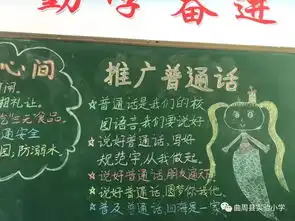 勤学奋进
心间
推广普通话
闹。
相礼让。
吃"三无"食品。
通安全
园,防溺水
★普通话是我们的校
园语言我们要说好
★说好普通话,写好
规范字从我做起。
★说好普通话朋友遍天下
★说好普通话,圆梦你我他。
★普及普通话,四海是一家
曲周县实验小学